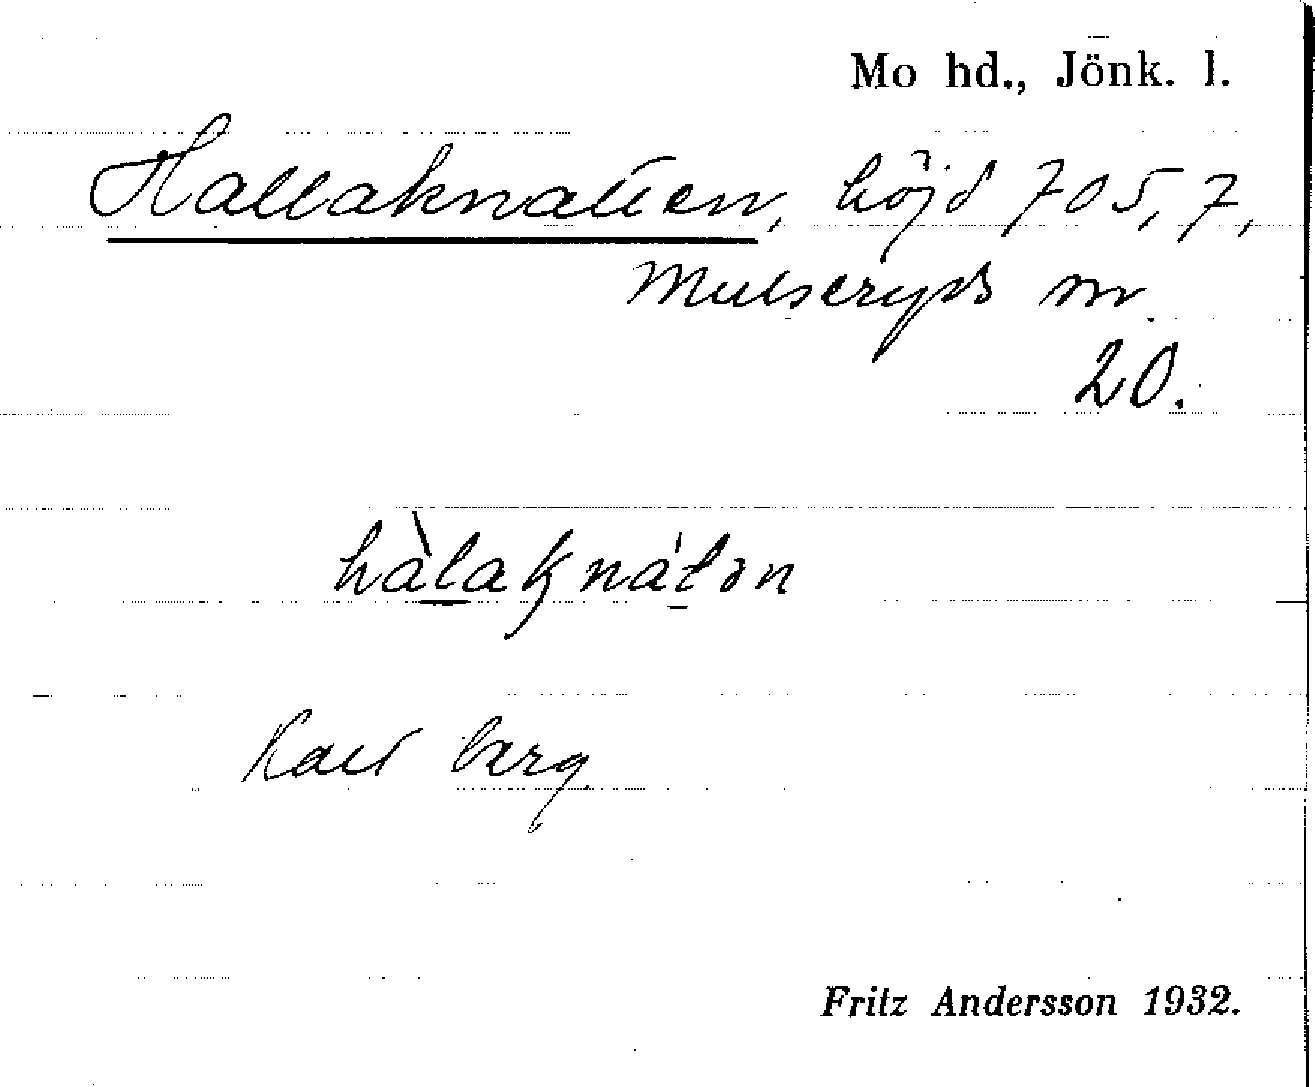 Mo hd., Jönk. l.
Hallaknatten, höjd 705,7,
Mulseryds sn.
20.
hàlaknátən
Karl Berg
Fritz Andersson 1932.